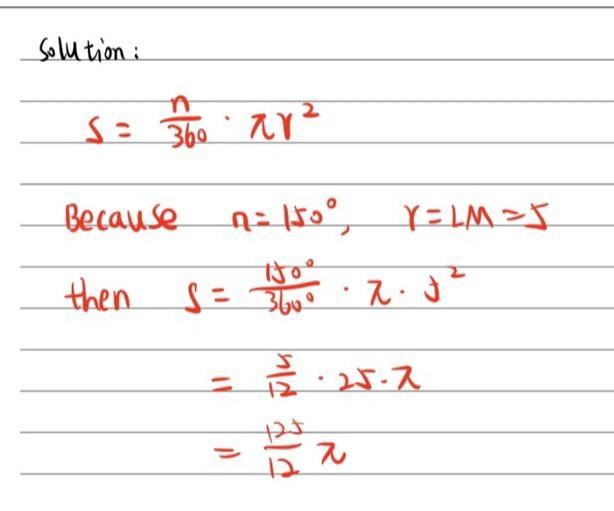 Solution:
S = n/360 · πr²
Because n=150°, r=LM=5
then S = 150°/360° · π · 5²
= 5/12 · 25 · π
= 125/12 π